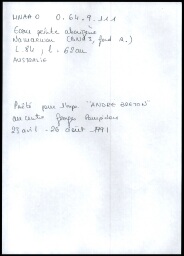 MNAAO O.64.9.111
Ecorce peinte aborigène
L.84; l.62cm
AUSTRALIE
Prêté pour l'expo "ANDRE BRETON"
au centre Georges Pompidou
23 avril - 26 août 1991